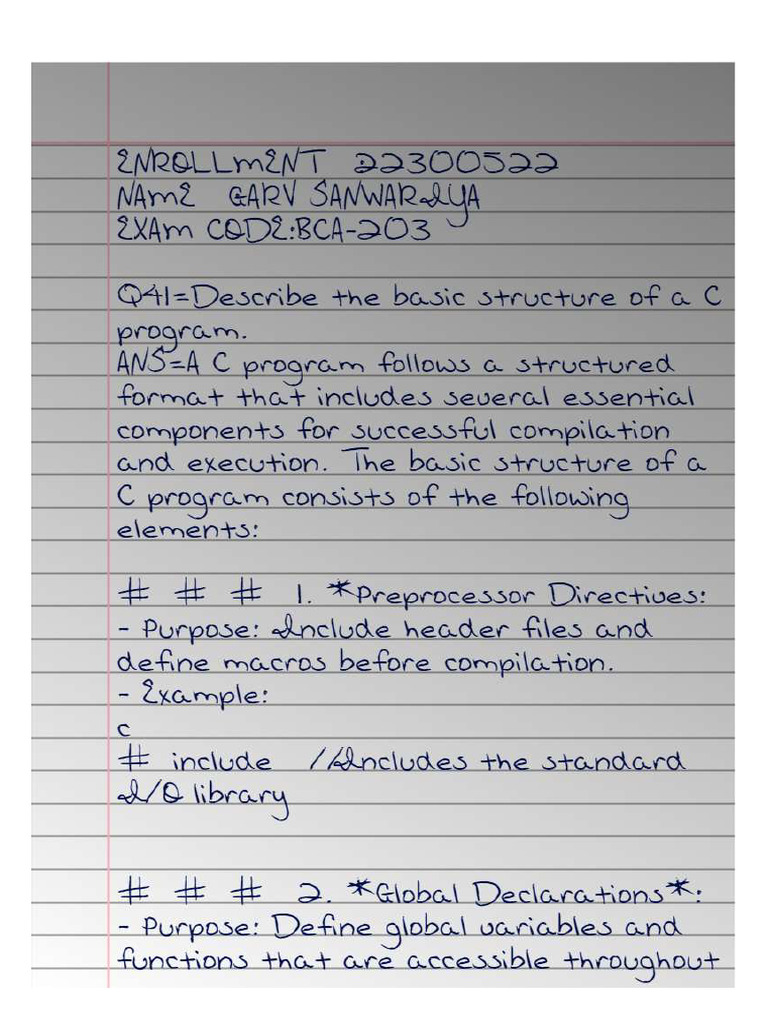 ENROLLMENT 22300522
NAME GARV SANWARIYA
EXAM CODE:BCA-203
Q41=Describe the basic structure of a C
program.
ANS=A C program follows a structured
format that includes several essential
components for successful compilation
and execution. The basic structure of a
C program consists of the following
elements:
# # # 1. *Preprocessor Directives:
- Purpose: Include header files and
define macros before compilation.
- Example:
c
# include //Includes the standard
I/O library
# # # 2. *Global Declarations*:
- Purpose: Define global variables and
functions that are accessible throughout